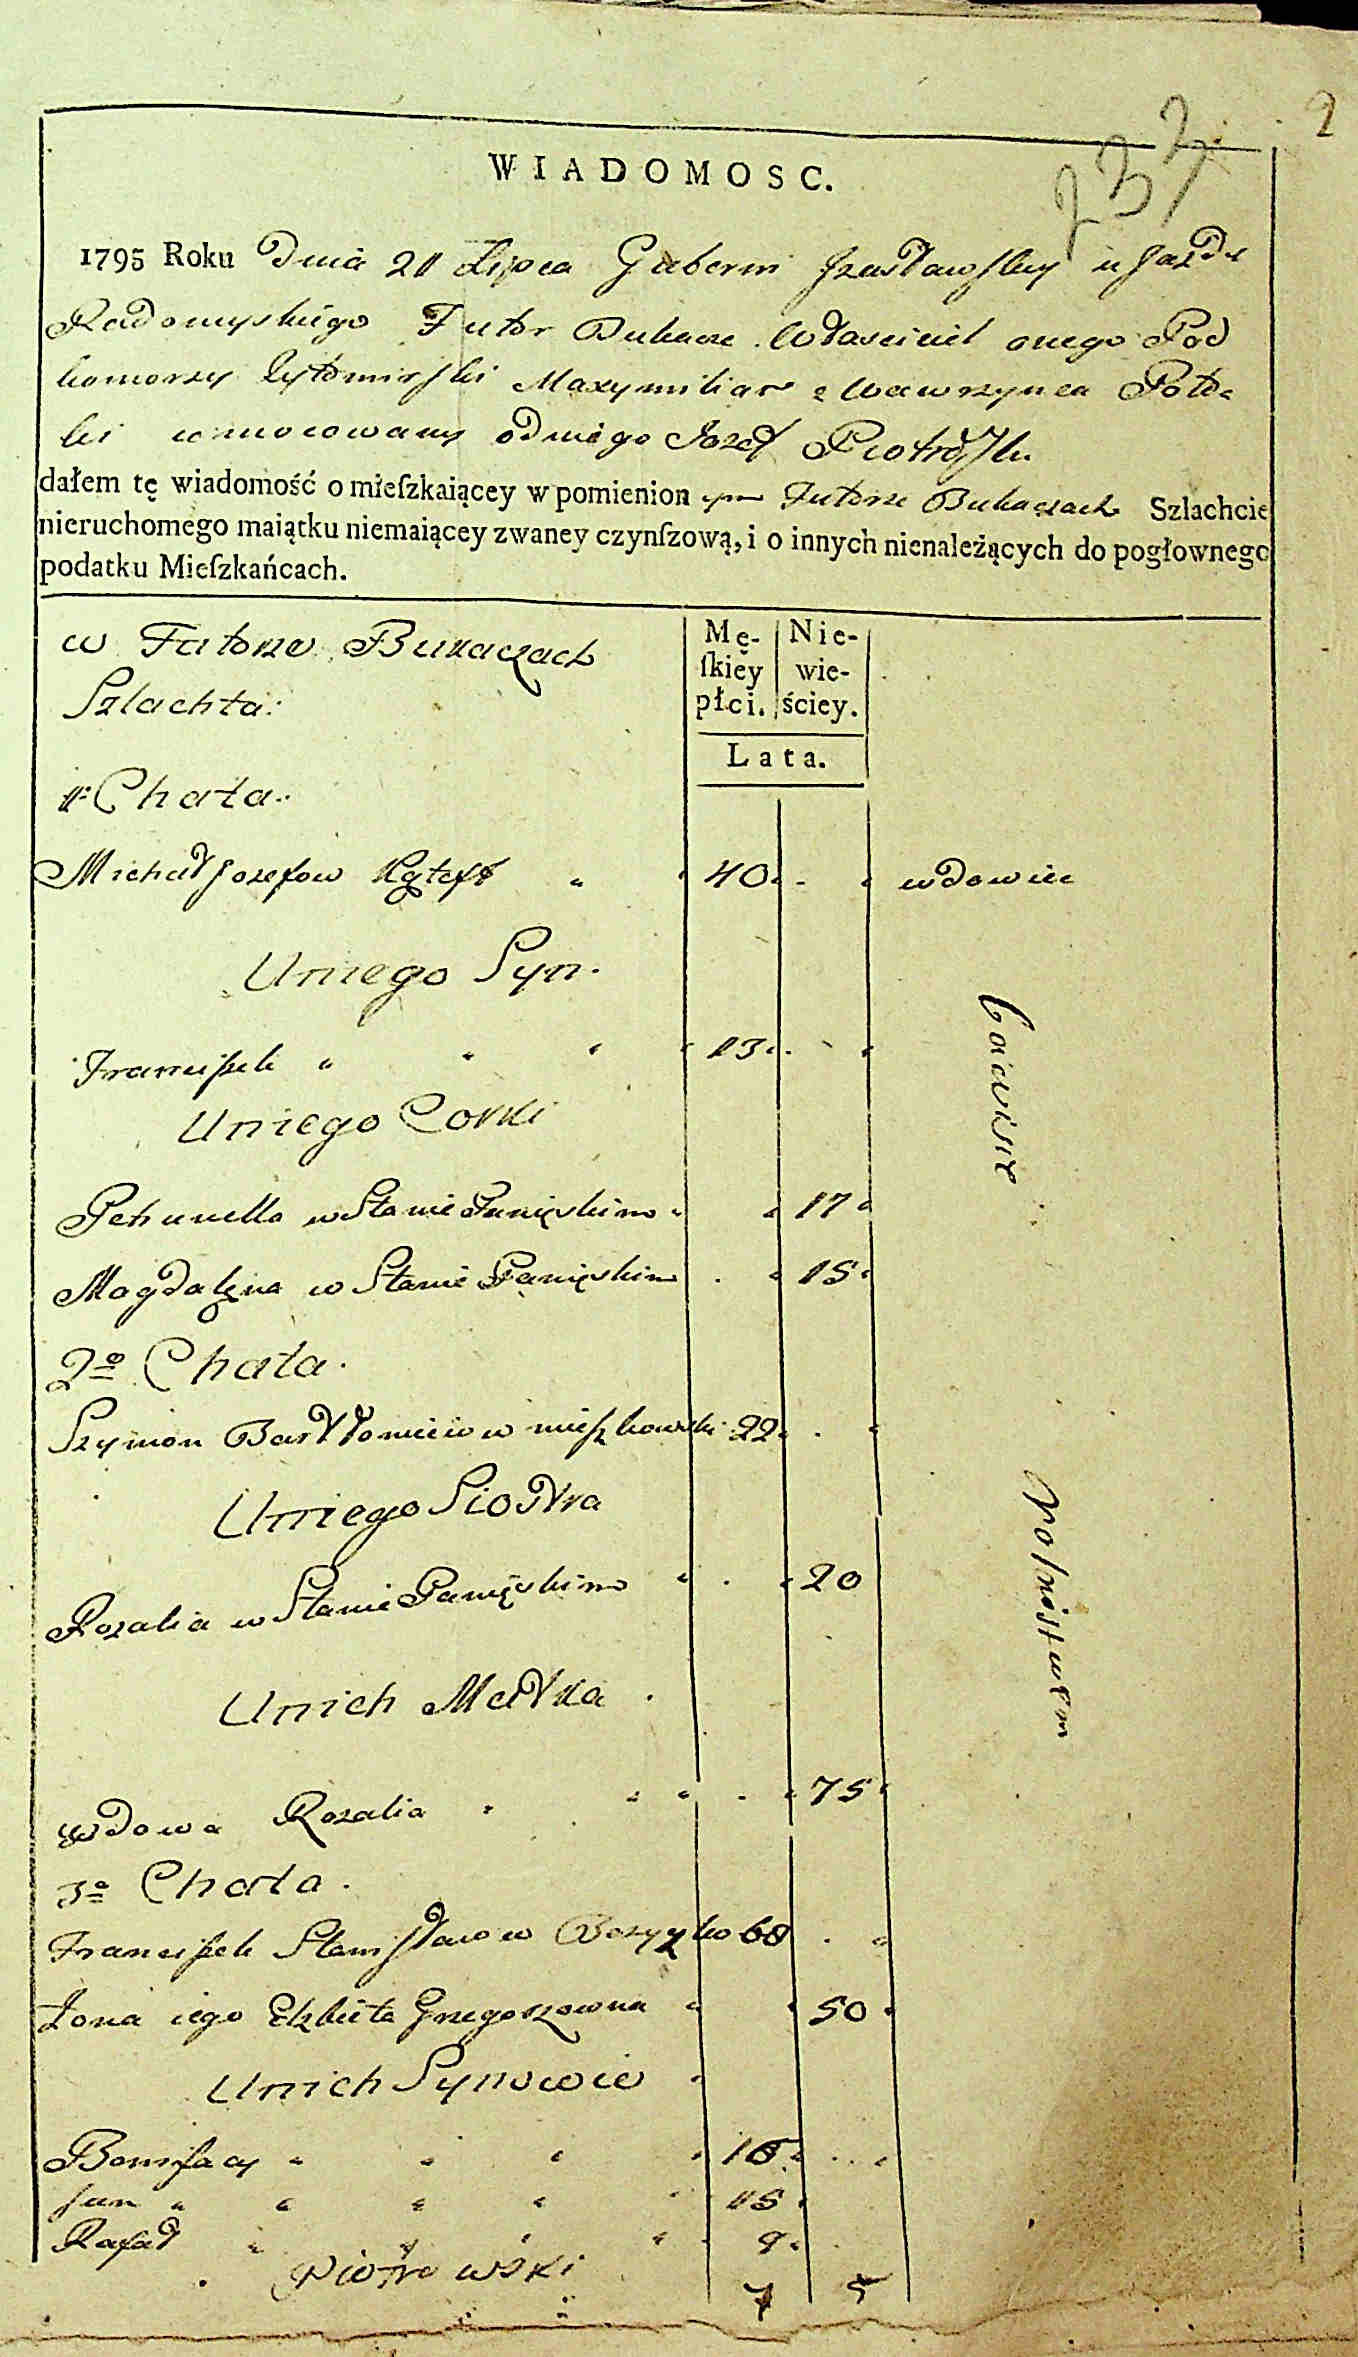 2
237
WIADOMOSC.
1795 Roku Dnia 21 Lipca Guberni Jzasławskiy ujazdu
Radomyskiego Futor Bukacze Właściciel onego Pod
komorzy Zytomirski Maxymilian z Wawrzynca Poto-
ki umocowany od niego Jozef Piotrowski
dałem tę wiadomość o mieſzkaiącey w pomienion ym Futorze Bukaczach Szlachcie
nieruchomego maiątku niemaiącey zwaney czynſzową, i o innych nienależących do pogłownego
podatku Mieſzkańcach.
w Futorze Bukaczach
Szlachta:
Mę- Nie-
ſkiey wie-
płci. ściey.
Lata.
1: Chata.
Michał Jozefow 40 wdowiec
Uniego Syn.
Franciszek 13
Uniego Corki
Petrunella w Stanie Panięskim 17
Magdalęna w Stanie Panięskim 15
2o Chata.
Szymon Bartłomieiow mieszkowski 22
Uniego Siostra
Rozalia w Stanie Panięskim 20
Unich Matka
wdowa Rozalia 75
3o Chata.
Franciszek Stanisławow 60
Żona iego Elzbieta Grzegorzowna 50
Unich Synowie
Bonifacy 16
Jan 15
Rafał 9
Piotrowski
7 5
bawisie
rolnistwem